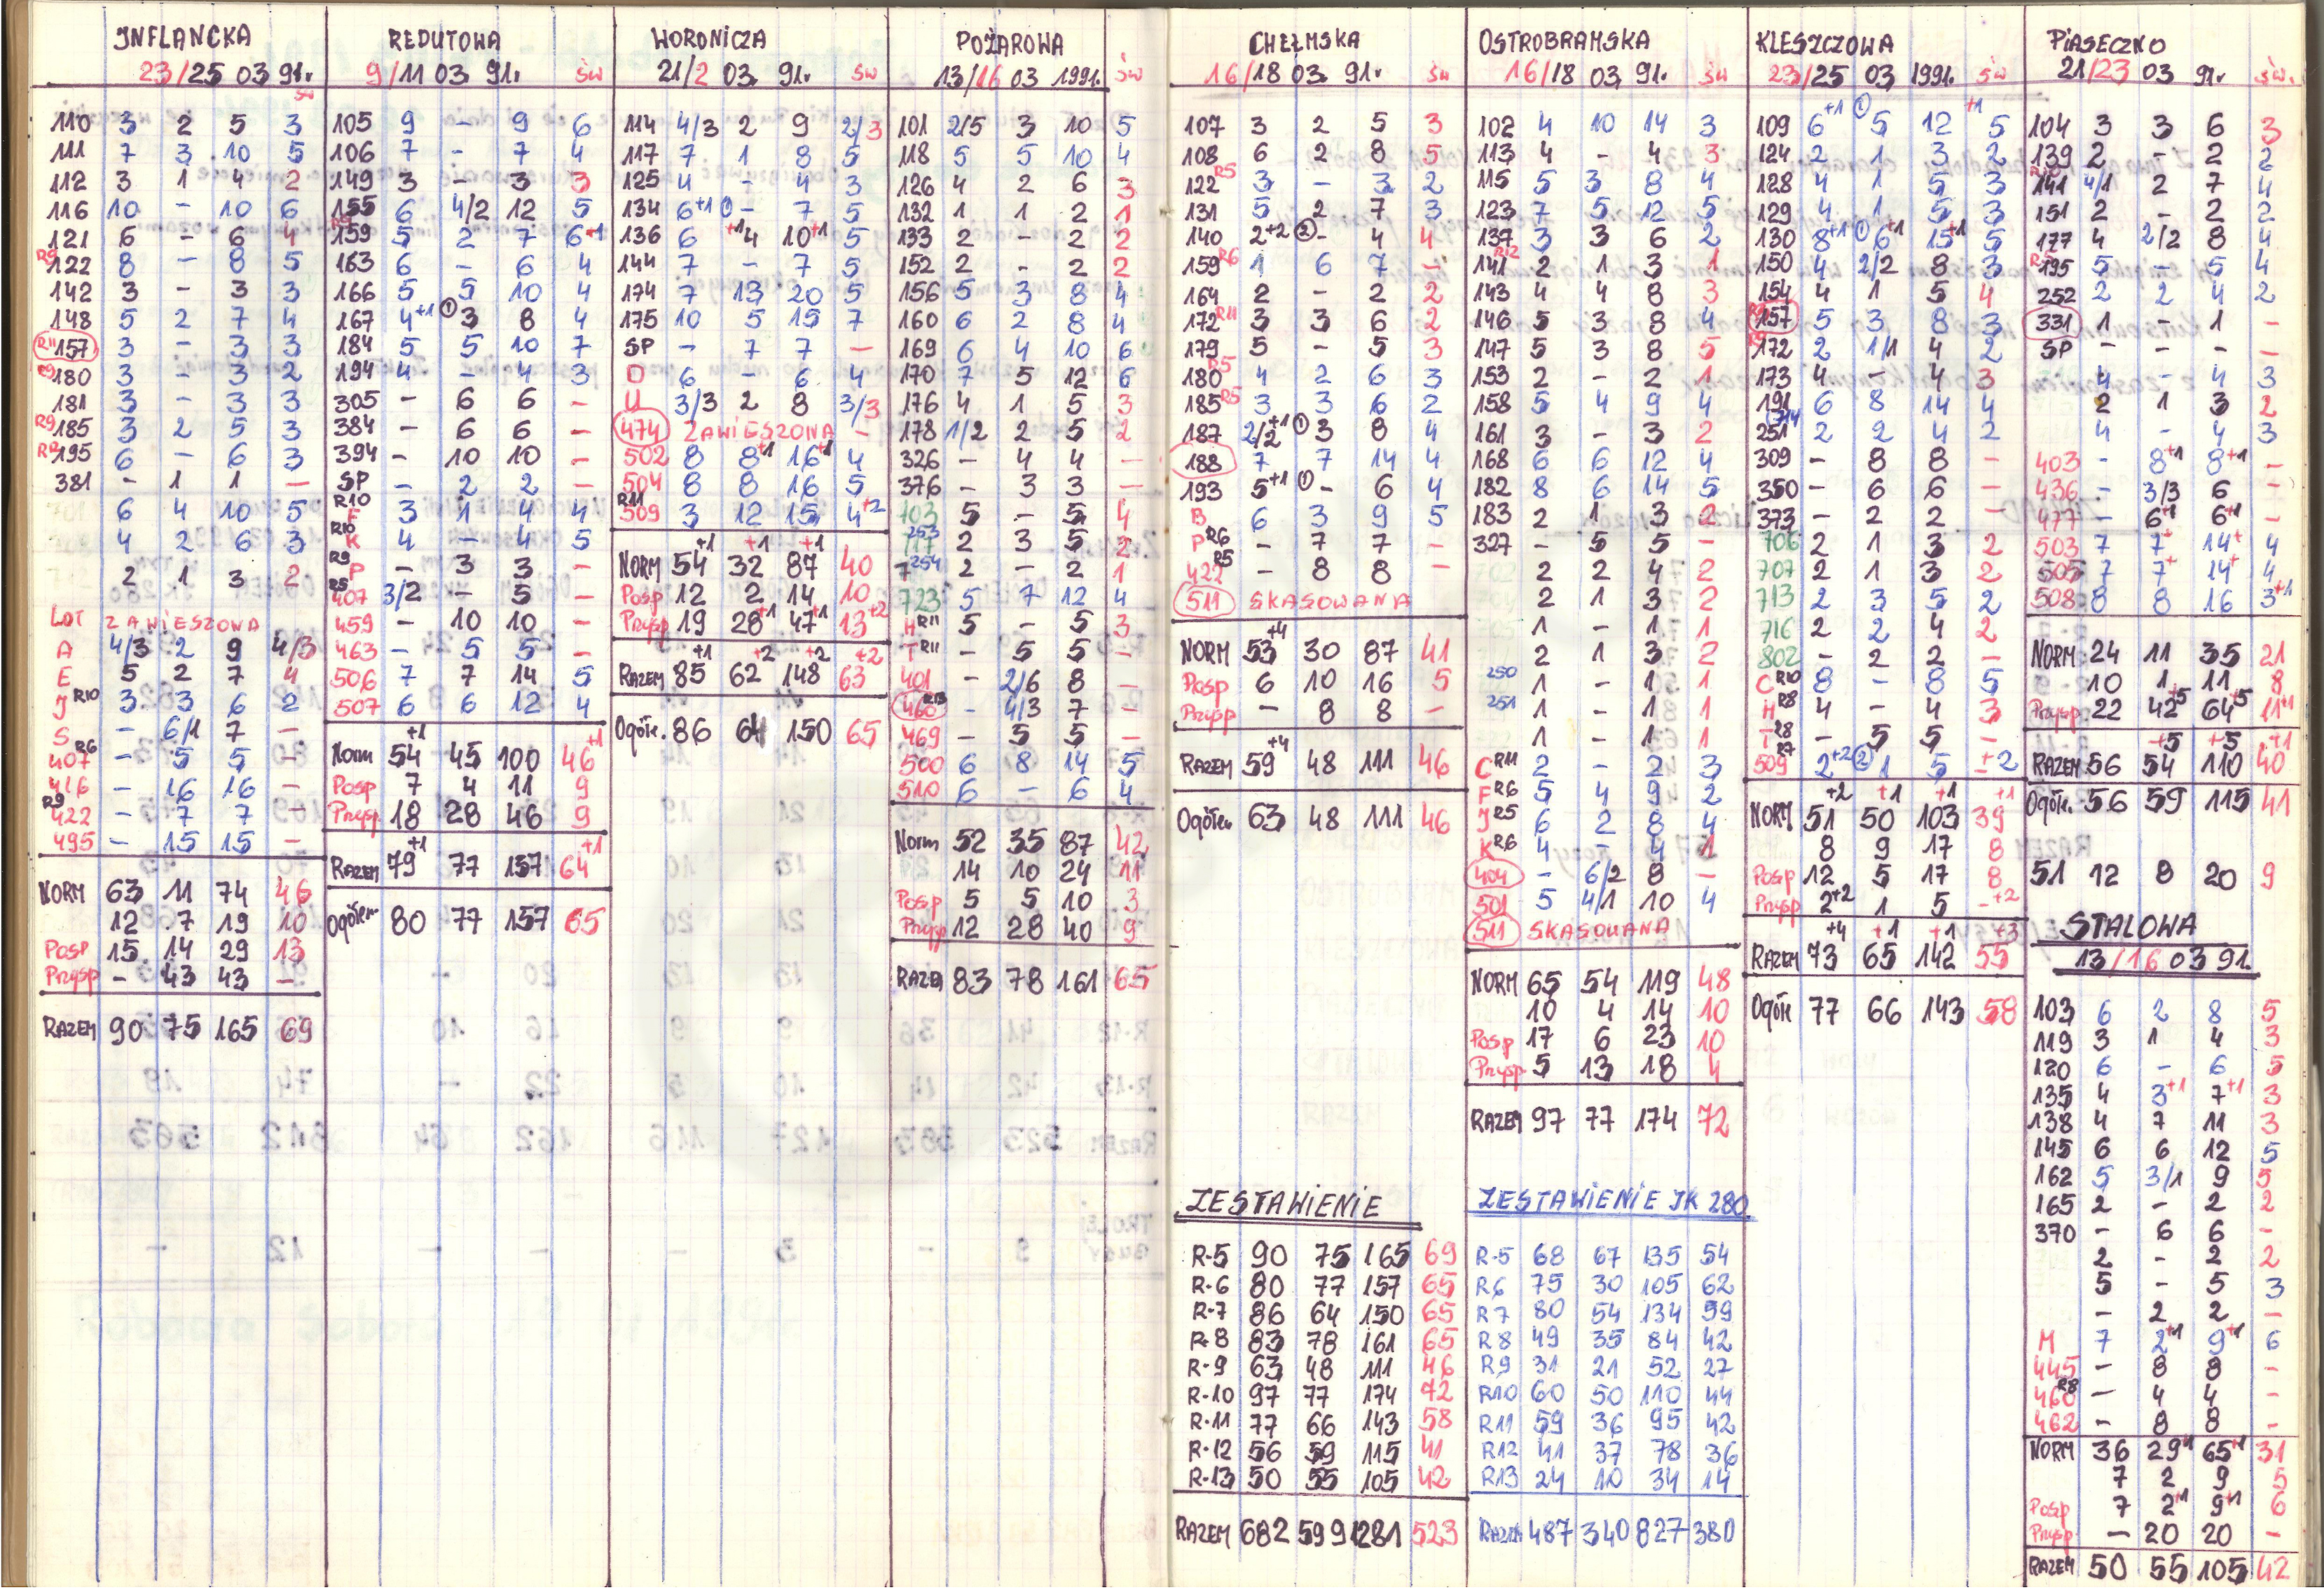 INFLANCKA
23/25 03 91r.
św
110 3 2 5 3
111 7 3 10 5
112 3 1 4 2
116 10 - 10 6
121 6 - 6 4
R9 122 8 - 8 5
142 3 - 3 3
148 5 2 7 4
R11 157 3 - 3 3
R9 180 3 - 3 2
181 3 - 3 3
R9 185 3 2 5 3
R12 195 6 - 6 3
381 - 1 1 -
6 4 10 5
4 2 6 3
2 1 3 2
LOT ZAWIESZONA
A 4/3 2 9 4/3
E 5 2 7 4
J R10 3 3 6 2
S - 6/1 7 -
407 R6 - 5 5 -
416 - 16 16 -
R9 422 - 7 7 -
495 - 15 15 -
NORM 63 11 74 46
12 7 19 10
Posp 15 14 29 13
Przysp - 43 43 -
RAZEM 90 75 165 69
REDUTOWA
9/11 03 91r. św
105 9 - 9 6
106 7 - 7 4
149 3 - 3 3
155 6 4/2 12 5
R9 159 5 2 7 6+1
163 6 - 6 4
166 5 5 10 4
167 4+1 ① 3 8 4
184 5 5 10 7
194 4 - 4 3
305 - 6 6 -
384 - 6 6 -
394 - 10 10 -
SP - 2 2 -
R10 F 3 1 4 4
R10 K 4 - 4 5
R9 P - 3 3 -
R5 407 3/2 - 5 -
459 - 10 10 -
463 - 5 5 -
506 7 7 14 5
507 6 6 12 4
Norm 54+1 45 100 46+1
Posp 7 4 11 9
Przysp 18 28 46 9
RAZEM 79+1 77 157 64+1
Ogółem 80 77 157 65
WORONICZA
21/2 03 91r. św
114 4/3 2 9 2/3
117 7 1 8 5
125 4 - 4 3
134 6+1 ① - 7 5
136 6 +1 4 10+1 5
144 7 - 7 5
174 7 13 20 5
175 10 5 15 7
SP - 7 7 -
D 6 - 6 4
U 3/3 2 8 3/3
474 ZAWIESZONA -
502 8 8+1 16+1 4
504 8 8 16 5
R11 509 3 12 15 4+2
NORM 54+1 32+1 87+1 40
Posp 12 2 14 10
Przysp 19 28+1 47+1 13+2
RAZEM 85+1 62+2 148+2 63+2
Ogółe. 86 64 150 65
POŻAROWA
13/16 03 1991r. św
101 2/5 3 10 5
118 5 5 10 4
126 4 2 6 3
132 1 1 2 1
133 2 - 2 2
152 2 - 2 2
156 5 3 8 4
160 6 2 8 4
169 6 4 10 6
170 7 5 12 6
176 4 1 5 3
178 1/2 2 5 2
326 - 4 4 -
376 - 3 3 -
703 5 - 5 4
717 253 2 3 5 2
7 254 2 - 2 1
723 5 7 12 4
H R11 5 - 5 3
T R11 - 5 5 -
401 - 2/6 8 -
460 R13 - 4/3 7 -
469 - 5 5 -
500 6 8 14 5
510 6 - 6 4
Norm 52 35 87 42
14 10 24 11
Posp 5 5 10 3
Przysp 12 28 40 9
RAZEM 83 78 161 65
CHEŁMSKA
16/18 03 91r. św
107 3 2 5 3
108 6 2 8 5
122 R5 3 - 3 2
131 5 2 7 3
140 2+2 ② - 4 4
159 R6 1 6 7 -
164 2 - 2 2
172 R11 3 3 6 2
179 5 - 5 3
180 R5 4 2 6 3
185 R5 3 3 6 2
187 2/2+1 ① 3 8 4
188 7 7 14 4
193 5+1 ① - 6 4
B 6 3 9 5
P R6 - 7 7 -
422 R5 - 8 8 -
511 SKASOWANA
NORM 53+4 30 87 41
Posp 6 10 16 5
Przysp - 8 8 -
RAZEM 59+4 48 111 46
Ogółem 63 48 111 46
ZESTAWIENIE
R-5 90 75 165 69
R-6 80 77 157 65
R-7 86 64 150 65
R-8 83 78 161 65
R-9 63 48 111 46
R-10 97 77 174 72
R-11 77 66 143 58
R-12 56 59 115 41
R-13 50 55 105 42
RAZEM 682 599 1281 523
OSTROBRAMSKA
16/18 03 91r. św
102 4 10 14 3
113 4 - 4 3
115 5 3 8 4
123 7 5 12 5
137 3 3 6 2
141 R12 2 1 3 1
143 4 4 8 3
146 5 3 8 4
147 5 3 8 5
153 2 - 2 1
158 5 4 9 4
161 3 - 3 2
168 6 6 12 4
182 8 6 14 5
183 2 1 3 2
327 - 5 5 -
2 2 4 2
2 1 3 2
1 - 1 1
2 1 3 2
250 1 - 1 1
251 1 - 1 1
1 - 1 1
C R11 2 - 2 3
F R6 5 4 9 2
J R5 6 2 8 4
K R6 4 - 4 1
404 - 6/2 8 -
501 5 4/1 10 4
511 SKASOWANA
NORM 65 54 119 48
10 4 14 10
Posp 17 6 23 10
Przysp 5 13 18 4
RAZEM 97 77 174 72
ZESTAWIENIE JK 280
R-5 68 67 135 54
R6 75 30 105 62
R7 80 54 134 59
R8 49 35 84 42
R9 31 21 52 27
R10 60 50 110 44
R11 59 36 95 42
R12 41 37 78 36
R13 24 10 34 14
RAZEM 487 340 827 380
KLESZCZOWA
23/25 03 1991r. św
109 6+1 ① 5 12 +1 5
124 2 1 3 2
128 4 1 5 3
129 4 1 5 3
130 8+1 ① 6+1 15+1 5
150 4 2/2 8 3
154 4 1 5 4
R9 157 5 3 8 3
R9 172 2 1/1 4 2
173 4 - 4 3
191 6 8 14 4
251 714 2 2 4 2
309 - 8 8 -
350 - 6 6 -
373 - 2 2 -
706 2 1 3 2
707 2 1 3 2
713 2 3 5 2
716 2 2 4 2
802 - 2 2 -
C R10 8 - 8 5
H R8 4 - 4 3
T R8 - 5 5 -
509 R7 2+2 ② 1 5 -+2
NORM 51+2 50+1 103+1 39+1
8 9 17 8
Posp 12 5 17 8
Przysp 2+2 1 5 -+2
RAZEM 73+4 65+1 142+1 55+3
Ogółe 77 66 143 58
PIASECZNO
21/23 03 91r. św.
104 3 3 6 3
139 2 - 2 2
R10 141 4/1 2 7 4
151 2 - 2 2
177 4 2/2 8 4
R5 195 5 - 5 4
252 2 2 4 2
331 1 - 1 -
SP - - - -
4 - 4 3
2 1 3 2
4 - 4 3
403 - 8+1 8+1 -
436 - 3/3 6 -
477 - 6+1 6+1 -
503 7 7+ 14+ 4
505 7 7+ 14+ 4
508 8 8 16 3+1
NORM 24 11 35 21
10 1 11 8
Przysp 22 42+5 64+5 11+1
RAZEM 56 54+5 110+5 40+1
Ogółe. 56 59 115 41
51 12 8 20 9
STALOWA
13/16 03 91.
103 6 2 8 5
119 3 1 4 3
120 6 - 6 5
135 4 3+1 7+1 3
138 4 7 11 3
145 6 6 12 5
162 5 3/1 9 5
165 2 - 2 2
370 - 6 6 -
2 - 2 2
5 - 5 3
- 2 2 -
M 7 2+1 9+1 6
445 - 8 8 -
460 R8 - 4 4 -
462 - 8 8 -
NORM 36 29+1 65+1 31
7 2 9 5
Posp 7 2+1 9+1 6
Przysp - 20 20 -
RAZEM 50 55 105 42